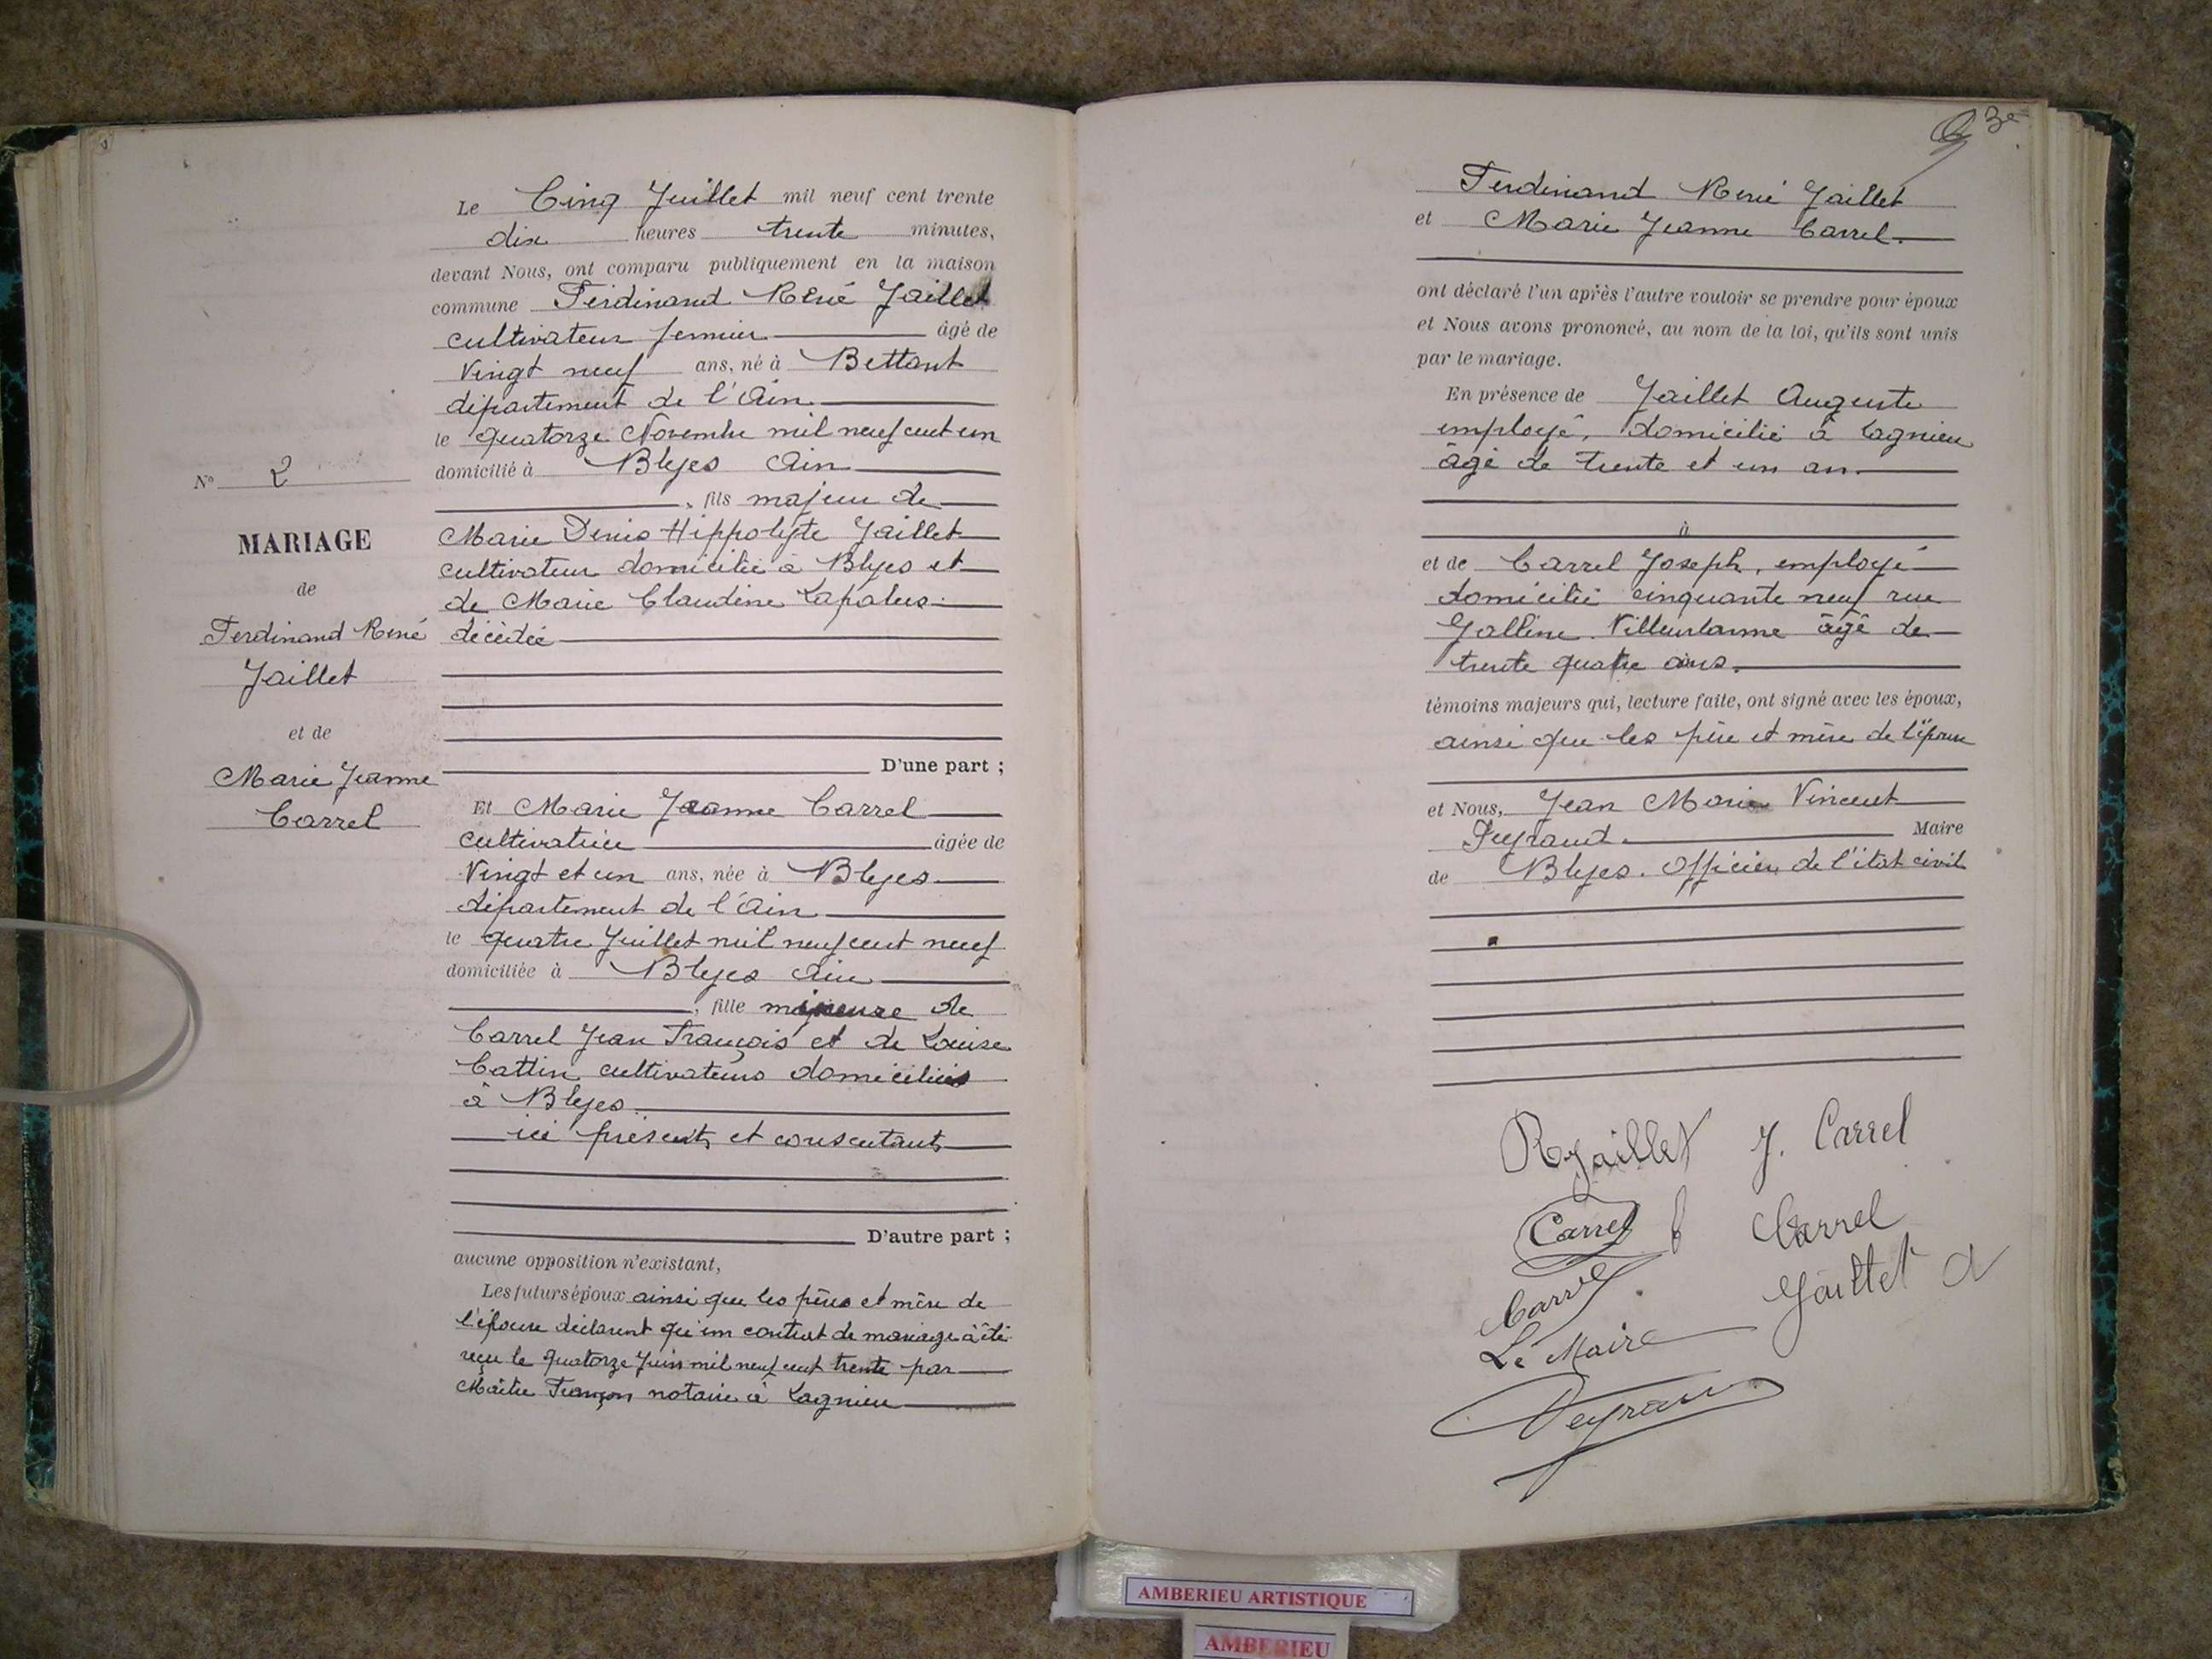 N° 2
MARIAGE
de
Ferdinand René
Jaillet
et de
Marie Jeanne
Carrel
Le Cinq Juillet mil neuf cent trente
dix heures trente minutes,
devant Nous, ont comparu publiquement en la maison
commune Ferdinand René Jaillet
cultivateur fermier âgé de
Vingt neuf ans, né à Bettant
département de l'Ain
le quatorze Novembre mil neuf cent un
domicilié à Blyes Ain
, fils majeur de
Marie Denis Hippolyte Jaillet
cultivateur domicilié à Blyes et
de Marie Claudine Lapalus
décédée
D'une part ;
Et Marie Jeanne Carrel
cultivatrice âgée de
Vingt et un ans, née à Blyes
département de l'Ain
le quatre Juillet mil neuf cent neuf
domiciliée à Blyes Ain
, fille majeure de
Carrel Jean François et de Louise
Cattin cultivateurs domiciliés
à Blyes
ici présents et consentants
D'autre part ;
aucune opposition n'existant,
Les futurs époux ainsi que les pères et mère de
l'épouse déclarent qu'un contrat de mariage à été
reçu le quatorze Juin mil neuf cent trente par
Maître Françon notaire à Lagnieu
3e
Ferdinand René Jaillet
et Marie Jeanne Carrel.
ont déclaré l'un après l'autre vouloir se prendre pour époux
et Nous avons prononcé, au nom de la loi, qu'ils sont unis
par le mariage.
En présence de Jaillet Auguste
employé, domicilié à Lagnieu
âgé de trente et un an.
à
et de Carrel Joseph, employé
domicilié cinquante neuf rue
Galline Villeurbanne âgé de
trente quatre ans.
témoins majeurs qui, lecture faite, ont signé avec les époux,
ainsi que les père et mère de l'épouse
et Nous, Jean Marie Vincent
Peyraud. Maire
de Blyes. Officier de l'état civil
R Jaillet J. Carrel
Carrel Carrel
Carrel Jaillet A
Le Maire
Peyraud
AMBERIEU ARTISTIQUE
AMBERIEU